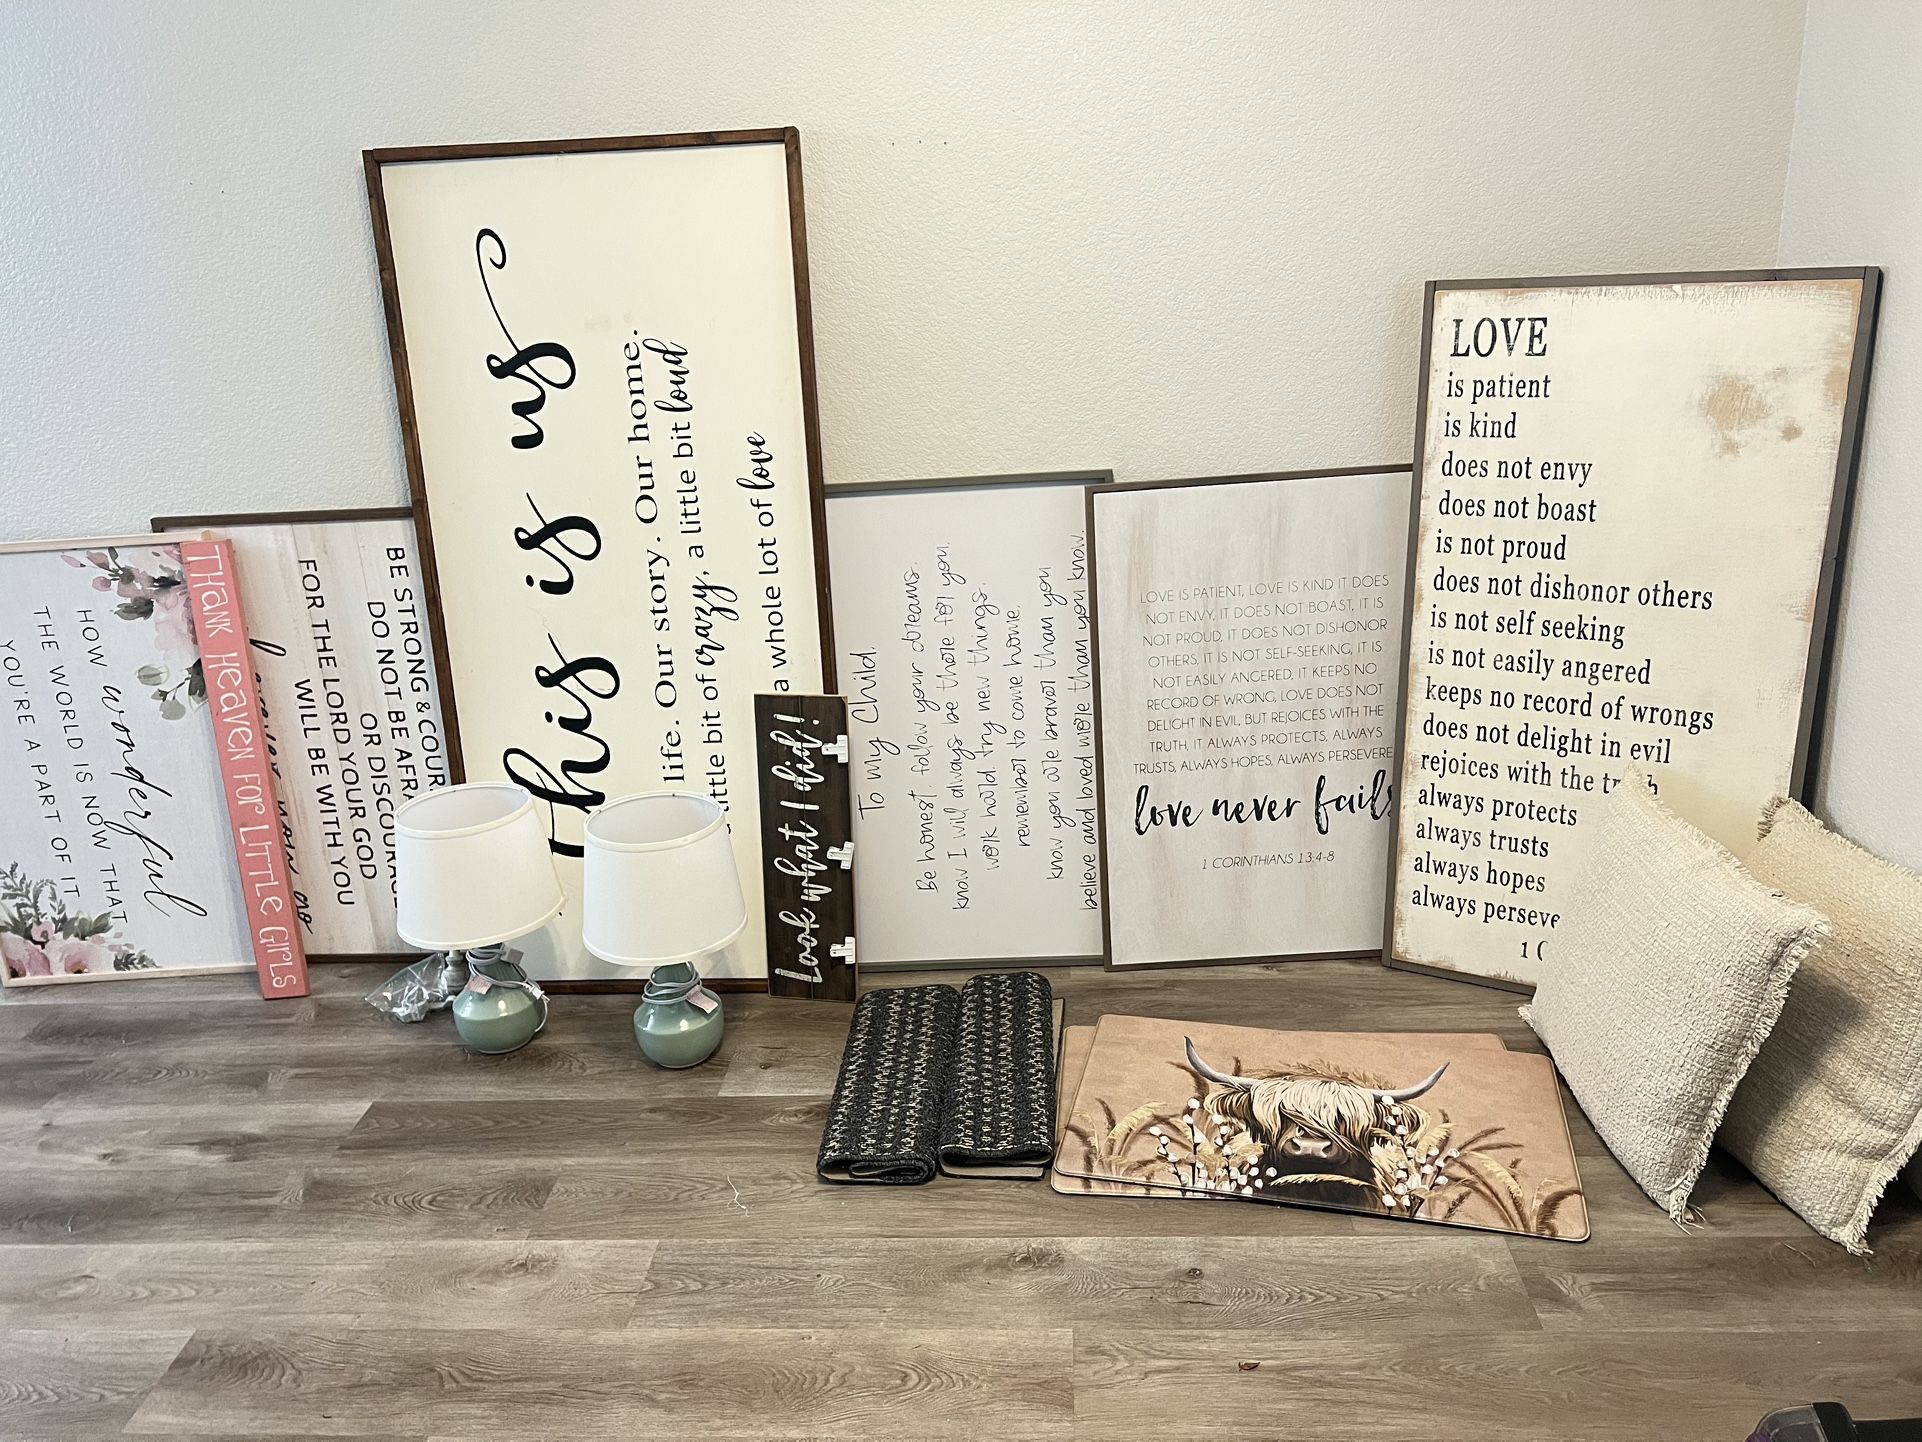 HOW wonderful
THE WORLD IS NOW THAT
YOU'RE A PART OF IT
THANK HEAVEN FOR LITTLE GIRLS
BE STRONG & COUR
DO NOT BE AFRA
OR DISCOURAGE
FOR THE LORD YOUR GOD
WILL BE WITH YOU
This is us
life. Our story. Our home.
little bit of crazy, a little bit loud
a whole lot of love
Look what I did!
To my Child.
Be honest. follow your dreams.
know I will always be there for you.
work hard. try new things.
remember to come home.
know you are braver than you
believe and loved more than you know.
LOVE IS PATIENT, LOVE IS KIND IT DOES
NOT ENVY, IT DOES NOT BOAST, IT IS
NOT PROUD, IT DOES NOT DISHONOR
OTHERS, IT IS NOT SELF-SEEKING, IT IS
NOT EASILY ANGERED, IT KEEPS NO
RECORD OF WRONG, LOVE DOES NOT
DELIGHT IN EVIL, BUT REJOICES WITH THE
TRUTH, IT ALWAYS PROTECTS, ALWAYS
TRUSTS, ALWAYS HOPES, ALWAYS PERSEVERE
love never fails
1 CORINTHIANS 13:4-8
LOVE
is patient
is kind
does not envy
does not boast
is not proud
does not dishonor others
is not self seeking
is not easily angered
keeps no record of wrongs
does not delight in evil
rejoices with the tr h
always protects
always trusts
always hopes
always perseve
1 C